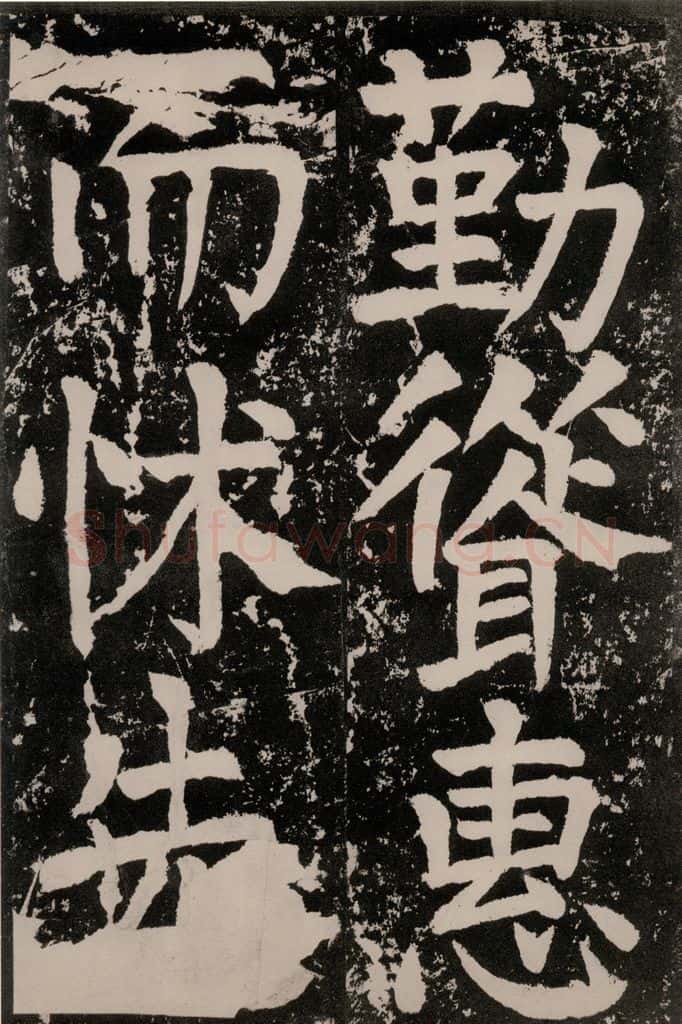 勤聳惠
而怵
Shufawang.CN